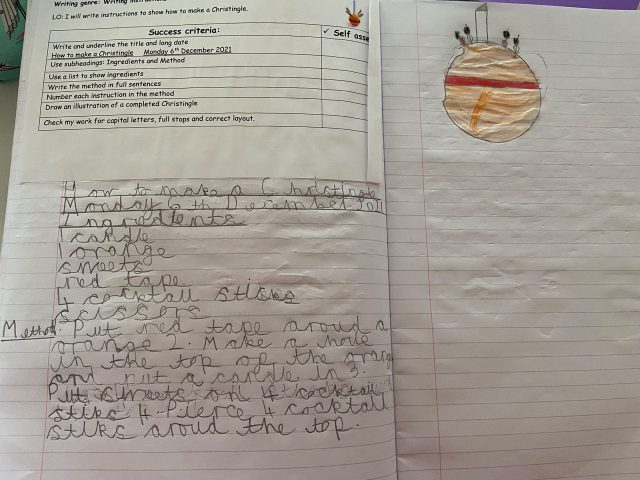 Writing genre: Writing
LO: I will write instructions to show how to make a Christingle.
Success criteria:
✓ Self asse
Write and underline the title and long date
How to make a Christingle Monday 6th December 2021
Use subheadings: Ingredients and Method
Use a list to show ingredients
Write the method in full sentences
Number each instruction in the method
Draw an illustration of a completed Christingle
Check my work for capital letters, full stops and correct layout.
How to make a Christingle
Monday 6th December 2021
Ingredients
1 candle
1 orange
sweets
red tape
4 cocktail sticks
scissors
Method: Put red tape aroud a
orange 2. Make a hole
in the top of the orang
and put a candle in 3.
Put sweets on 4 cocktail
stiks 4. Pierce 4 cocktail
stiks aroud the top.